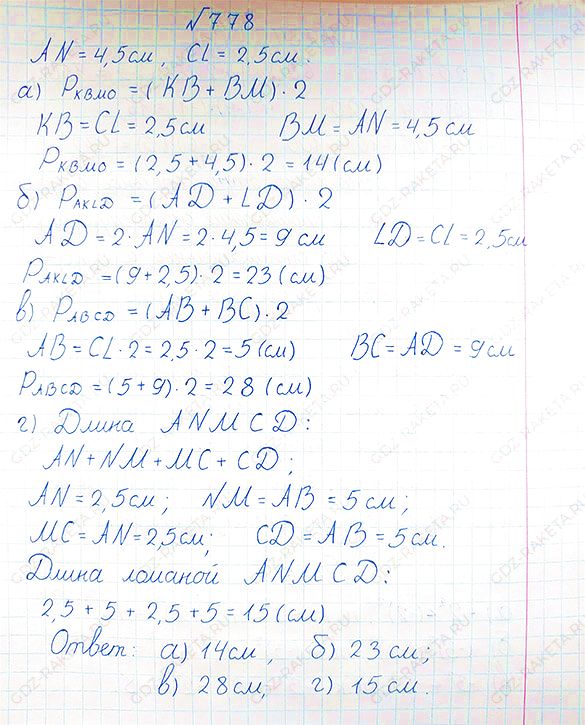 √778
AN = 4,5 см, CL = 2,5 см.
а) PKBMO = (KB + BM) · 2
KB = CL = 2,5 см BM = AN = 4,5 см
PKBMO = (2,5 + 4,5) · 2 = 14 (см)
б) PAKLD = (AD + LD) · 2
AD = 2 · AN = 2 · 4,5 = 9 см LD = CL = 2,5 см
PAKLD = (9 + 2,5) · 2 = 23 (см)
в) PABCD = (AB + BC) · 2
AB = CL · 2 = 2,5 · 2 = 5 (см) BC = AD = 9 см
PABCD = (5 + 9) · 2 = 28 (см)
г) Длина ANMCD:
AN + NM + MC + CD;
AN = 2,5 см; NM = AB = 5 см;
MC = AN = 2,5 см; CD = AB = 5 см.
Длина ломаной ANMCD:
2,5 + 5 + 2,5 + 5 = 15 (см)
Ответ: а) 14 см, б) 23 см;
в) 28 см, г) 15 см.
GDZ-RAKETA.RU